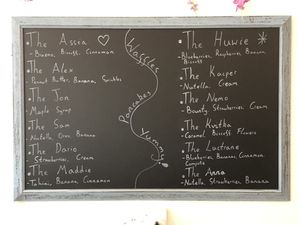 • The Assia ♡
- Banana, Biscoff, Cinnamon
• The Alex
- Peanut Butter, Banana, Sprinkles
• The Jon
- Maple Syrup
• The Sam
- Nutella, Oreo, Banana
• The Dario
- Strawberries, Cream
• The Maddie
- Tahini, Banana, Cinnamon
Waffles
Pancakes
Yummy
• The Huwie
- Blueberries, Raspberries, Banana,
Biscoff
• The Kacper
- Nutella, Cream
• The Nemo
- Bounty, Strawberries, Cream
• The Kvitka
- Caramel, Biscoff, Flowers
• The
- Blueberries, Bananas, Cinnamon,
Compote
• The Anna
- Nutella, Strawberries, Banana